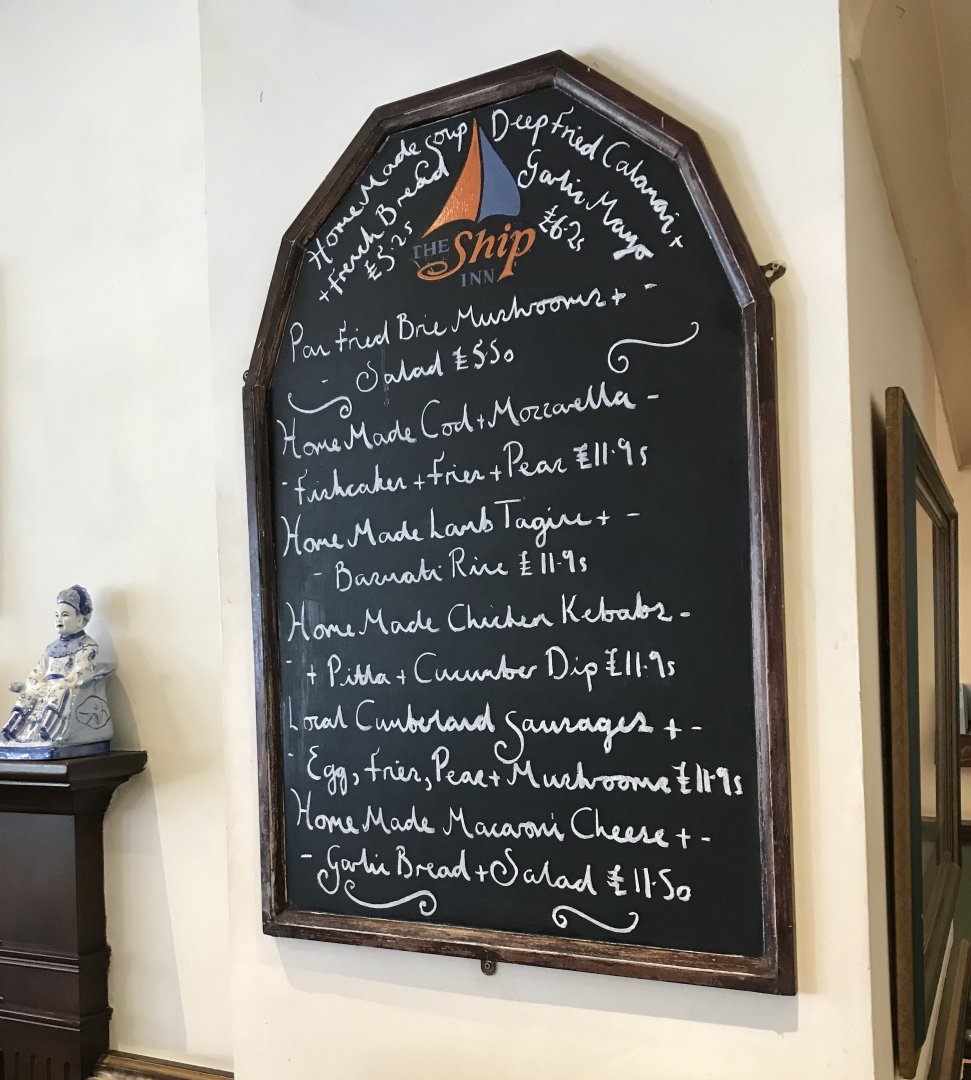 Home Made Soup
+ French Bread
£5.25
Deep Fried Calamari +
Garlic Mayo
£6.25
THE
Ship
INN
Pan Fried Brie Mushrooms + -
- Salad £5.50
Home Made Cod + Mozzarella -
- Fishcakes + Fries + Peas £11.95
Home Made Lamb Tagine + -
- Basmati Rice £11.95
Home Made Chicken Kebabs -
- + Pitta + Cucumber Dip £11.95
Local Cumberland Sausages + -
- Egg, Fries, Peas + Mushrooms £11.95
Home Made Macaroni Cheese + -
- Garlic Bread + Salad £11.50